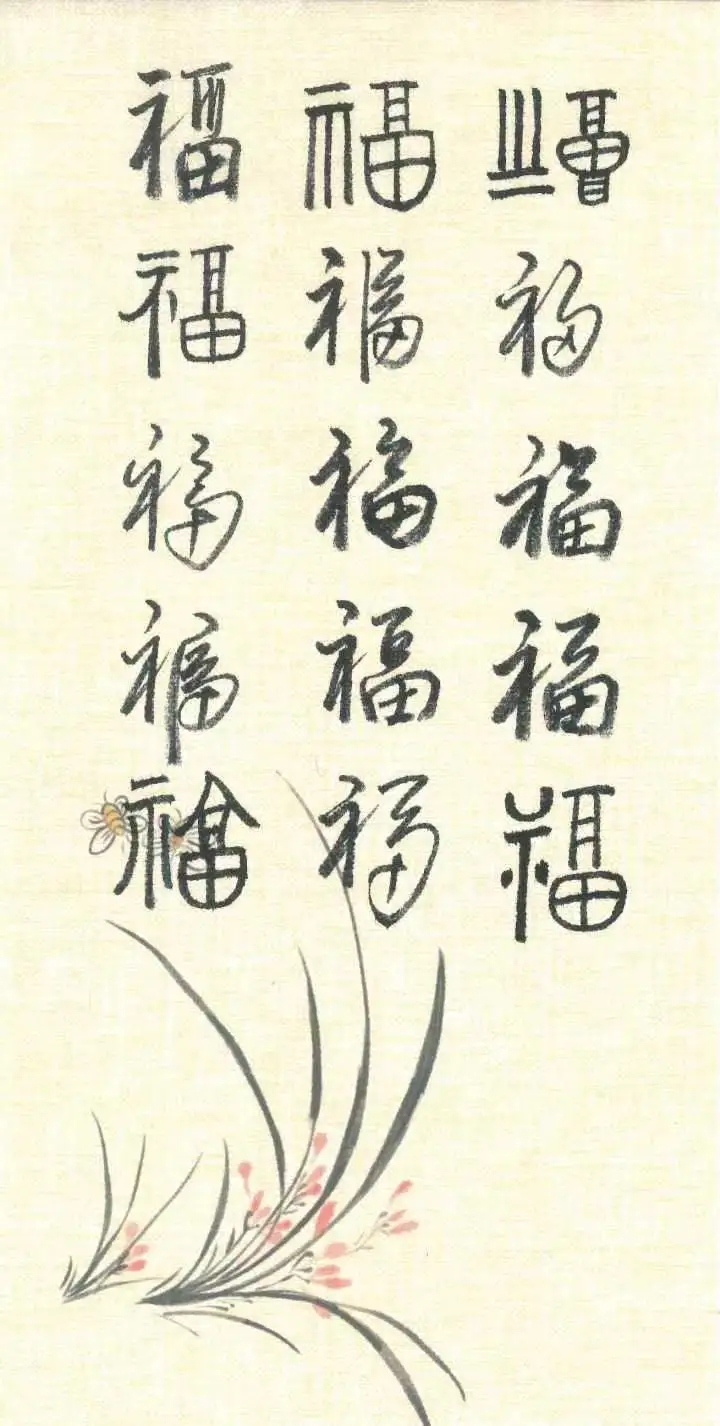 福福福福福
福福福福福
福福福福福